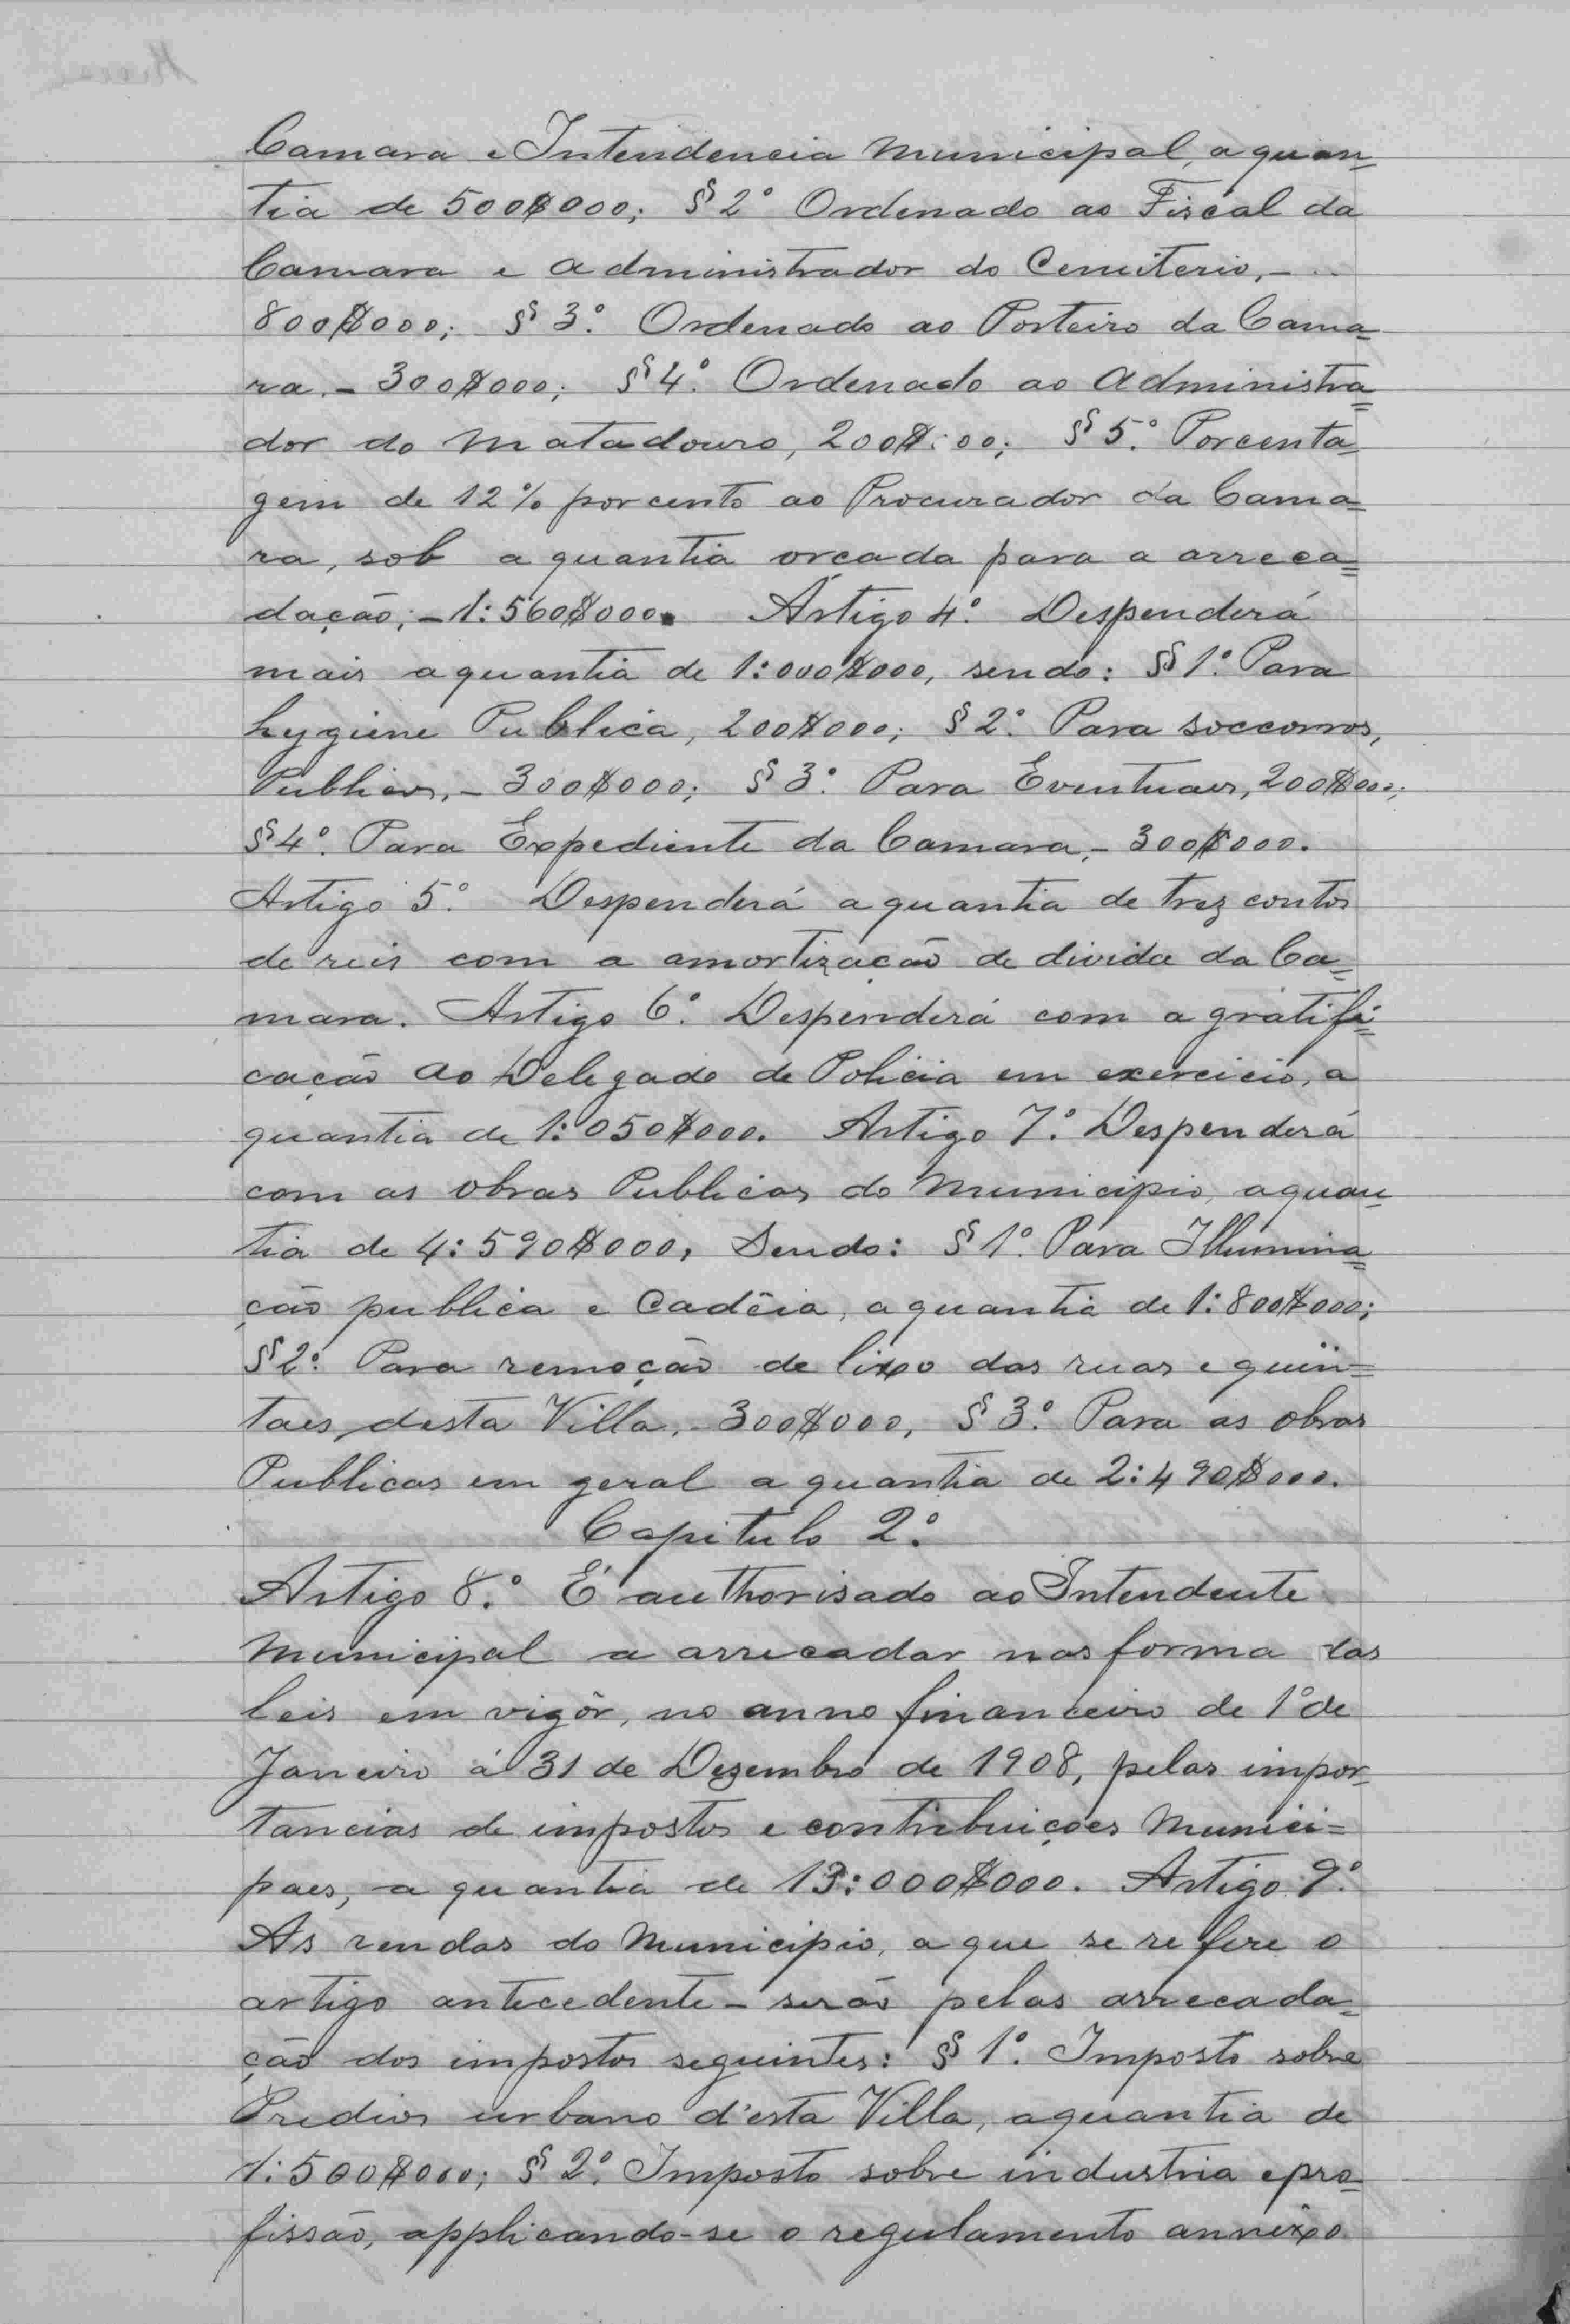 Camara e Intendencia Municipal, a quan-
tia de 500$000; § 2º Ordenado ao Fiscal da
Camara e Administrador do Cemiterio, -
800$000; § 3º. Ordenado ao Porteiro da Cama-
ra. - 300$000; § 4º. Ordenado ao Administra=
dor do Matadouro, 200$:00; § 5º. Porcenta-
gem de 12% por cento ao Procurador da Cama=
ra, sob a quantia orcada para a arreca=
dação; - 1:560$000. Artigo 4º. Despenderá
mais a quantia de 1:000$000, sendo: § 1º. Para
hygiene Publica, 200$000; § 2º. Para soccorros,
Publicos, - 300$000; § 3º. Para Eventuaes, 200$000;
§ 4º. Para Expediente da Camara, - 300$000.
Artigo 5º. Despenderá a quantia de trez contos
de reis com a amortização de divida da Ca=
mara. Artigo 6º. Despenderá com a gratifi=
cação ao Delegado de Policia em exercicio, a
quantia de 1:050$000. Artigo 7º. Despenderá
com as obras Publicas do Municipio, a quan-
tia de 4:590$000, Sendo: § 1º. Para Illumina=
ção publica e Cadêia, a quantia de 1:800$000;
§ 2º. Para remoção de lixo das ruas e quin=
taes desta Villa, - 300$000, § 3º. Para as obras
Publicas em geral a quantia de 2:490$000.
Capitulo 2º.
Artigo 8º. É authorisado ao Intendente
Municipal a arrecadar nas forma das
leis em vigôr, no anno financeiro de 1º de
Janeiro á 31 de Dezembro de 1908, pelas impor-
tancias de impostos e contribuições Munici=
paes, a quantia de 13:000$000. Artigo 9º.
As rendas do Municipio, a que se refere o
artigo antecedente - serão pelas arrecada=
ção dos impostos seguintes: § 1º. Imposto sobre
Predios urbano d'esta Villa, a quantia de
1:500$000; § 2º. Imposto sobre industria e pro=
fissão, applicando-se o regulamento annexo